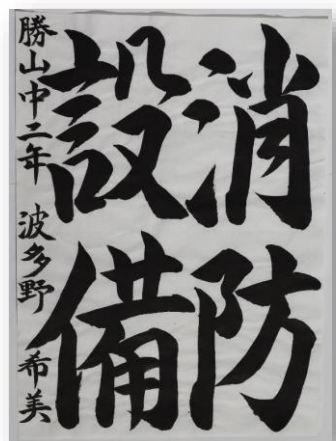 消防
設備
勝山中二年 波多野 希美